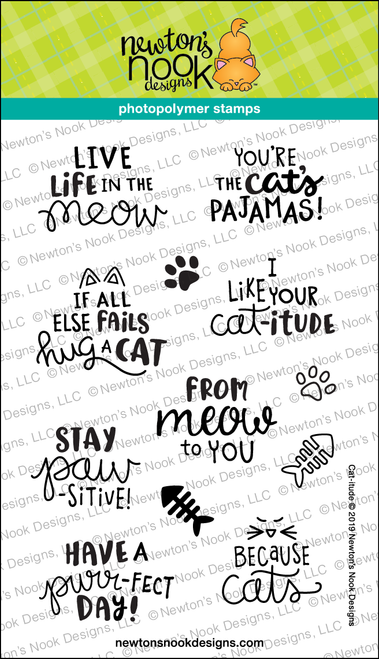 newton's
nook
designs
TM
photopolymer stamps
LIVE
LiFE IN THE
meow
YOU'RE
THE cat's
PAJAMAS!
IF ALL
ELSE FAILS
hug A CAT
I
LiKE YOUR
cat-iTUDE
FROM
meow
to YOU
STAY
paw
-SiTiVE!
HAVE A
purr-FECT
DAY!
BECAUSE
cats
Cat-itude © 2019 Newton's Nook Designs
newtonsnookdesigns.com
© Newton's Nook Designs, LLC